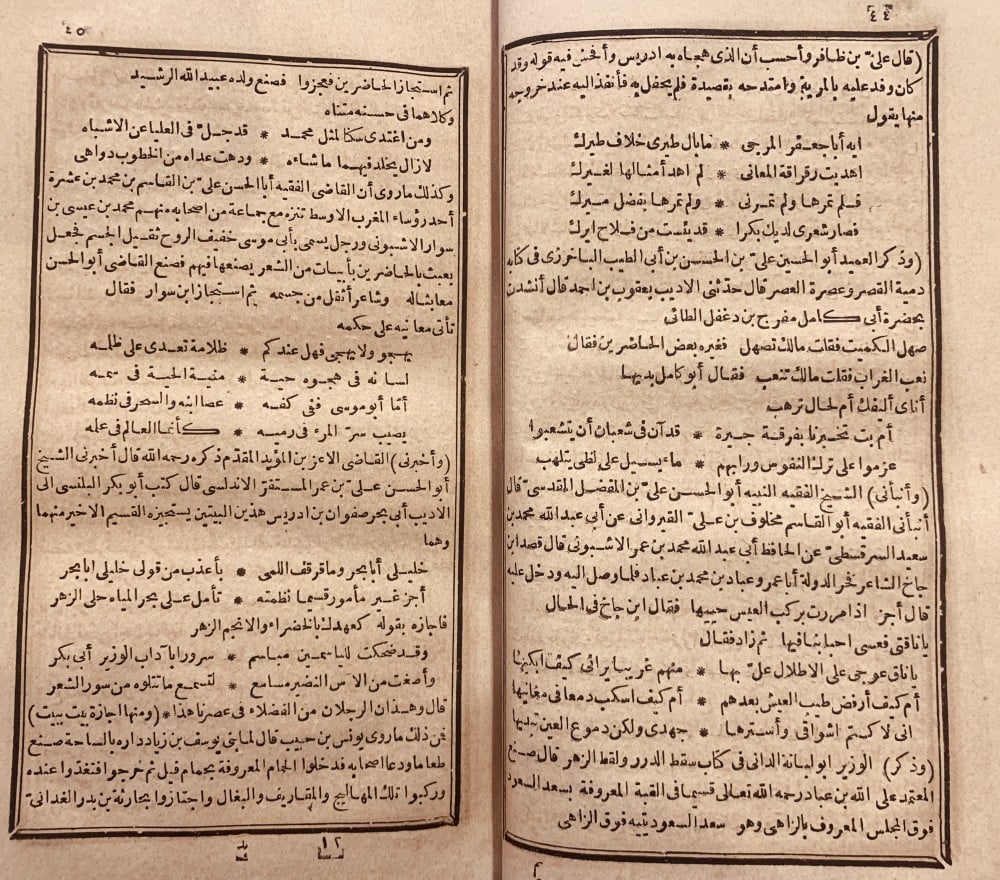 ٤٤
(قال علىّ بن ظافر وأحسب أن الذى هجاه به ادريس وأفحش فيه قوله وقد
كان وفد عليه بالمرية وامتدحه بقصيدة فلم يحفل به فأنفذ اليه عند خروجه
منها يقول
ايه أبا جعفر المرجى * ما بال طيرى خلاف طيرك
اهديت رقراقة المعانى * لم اهد أمثالها لغيرك
فلم تمرها ولم تمرنى * ولم تمرها بفضل ميرك
فصار شعرى لديك بكرا * قد يئست من فلاح ايرك
(وذكر العميد أبو الحسين علىّ بن الحسن بن أبى الطيب الباخرزى فى كتابه
دمية القصر وعصرة العصر قال حدثنى الاديب يعقوب بن احمد قال أنشدت
بحضرة أبى كامل مفرج بن دغفل الطائى
صهل الكميت فقلت مالك تصهل فغيره بعض الحاضرين فقال
نعب الغراب فقلت مالك تنعب فقال أبو كامل بديها
أناى أليفك أم لحال ترهب
أم بت تخبرنا بفرقة جيرة * قد آن فى شعبان أن يتشعبوا
عزموا على ترك النفوس ورابهم * ماء يسيل على لظى يتلهب
(وأنبأنى) الشيخ الفقيه النبيه أبو الحسن علىّ بن المفضل المقدسىّ قال
أنبأنى الفقيه أبو القاسم مخلوف بن علىّ القيروانى عن أبى عبد الله محمد بن
سعيد السرقسطىّ عن الحافظ أبى عبد الله محمد بن عمر الاشبونى قال قصد ابن
جاخ الشاعر فخر الدولة أبا عمرو عباد بن محمد بن عباد فلما وصل اليه ودخل عليه
قال أجز اذا مررت بركب العيس حييها فقال ابن جاخ فى الحال
يا ناقتى فعسى احبابنا فيها ثم زاد فقال
يا ناق عوجى على الاطلال علّ بها * منهم غريبا يرانى كيف ابكيها
أم كيف أرفض طيب العيش بعدهم * أم كيف اسكب دمعا فى مغانيها
انى لا كتم اشواقى وأسترها * جهدى ولكن دموع العين تبديها
(وذكر) الوزير ابو لبانة الدانى فى كتاب سقط الدرر ولقط الزهر قال صنع
المعتمد على الله بن عباد رحمه الله تعالى قسيما فى القبة المعروفة بسعد السعود
فوق المجلس المعروف بالزاهى وهو سعد السعود يتيه فوق الزاهى
٤٥
ثم استجاز الحاضرين فعجزوا فصنع ولده عبيد الله الرشيد
وكلاهما فى حسنه متناه
ومن اغتدى سكنا لمثل محمد * قد جلّ فى العليا عن الاشباه
لازال يخلد فيهما ما شاءه * ودهت عداه من الخطوب دواهى
وكذلك ما روى أن القاضى الفقيه أبا الحسن علىّ بن القاسم بن محمد بن عشرة
أحد رؤساء المغرب الاوسط تنزه مع جماعة من اصحابه منهم محمد بن عيسى بن
سوار الاشبونى ورجل يسمى بأبى موسى خفيف الروح ثقيل الجسم فجعل
يعبث بالحاضرين بأبيات من الشعر يصنعها فيهم فصنع القاضى أبو الحسن
معابثا له وشاعر أثقل من جسمه ثم استجاز ابن سوار فقال
تأتى معانيه على حكمه
يهجو ولا يهجى فهل عندكم * ظلامة تعدى على ظلمه
لسانه فى هجوه حية * منية الحية فى سمه
أمّا أبو موسى ففى كفه * عصا ابنه والسحر فى نظمه
يصيب سرّ المرء فى رميه * كأنما العالم فى علمه
(وأخبرنى) القاضى الاعز بن المؤيد المقدّم ذكره رحمه الله قال أخبرنى الشيخ
أبو الحسن علىّ بن عمر المستقرّ الاندلسى قال كتب أبو بكر البلنسى الى
الاديب أبى بحر صفوان بن ادريس هذين البيتين يستجيزه القسيم الاخير منهما
وهما
خليلى أبا بحر وما قرقف اللمى * بأعذب من قولى خليلى ابا بحر
أجز غير مأمور قسيما نظمته * تأمل على بحر المياه حلى الزهر
فاجازه بقوله كعهدك بالخضراء والانجم الزهر
وقد ضحكت للياسمين مباسم * سرورا بآداب الوزير أبى بكر
وأصغت من الآس النضير مسامع * لتسمع ما تتلوه من سور الشعر
قال وهذان الرجلان من الفضلاء فى عصرنا هذا * (ومنها اجازة بيت ببيت)
فمن ذلك ما روى يونس بن حبيب قال لما بنى يوسف بن زياد داره بالساحة صنع
طعاما ودعا اصحابه فدخلوا الحمام المعروفة بحمام فيل ثم خرجوا فتغدّوا عنده
وركبوا تلك المهاليج والمقاريف والبغال واجتازوا بحارثة بن بدر الغدانىّ
١٢
يد
م